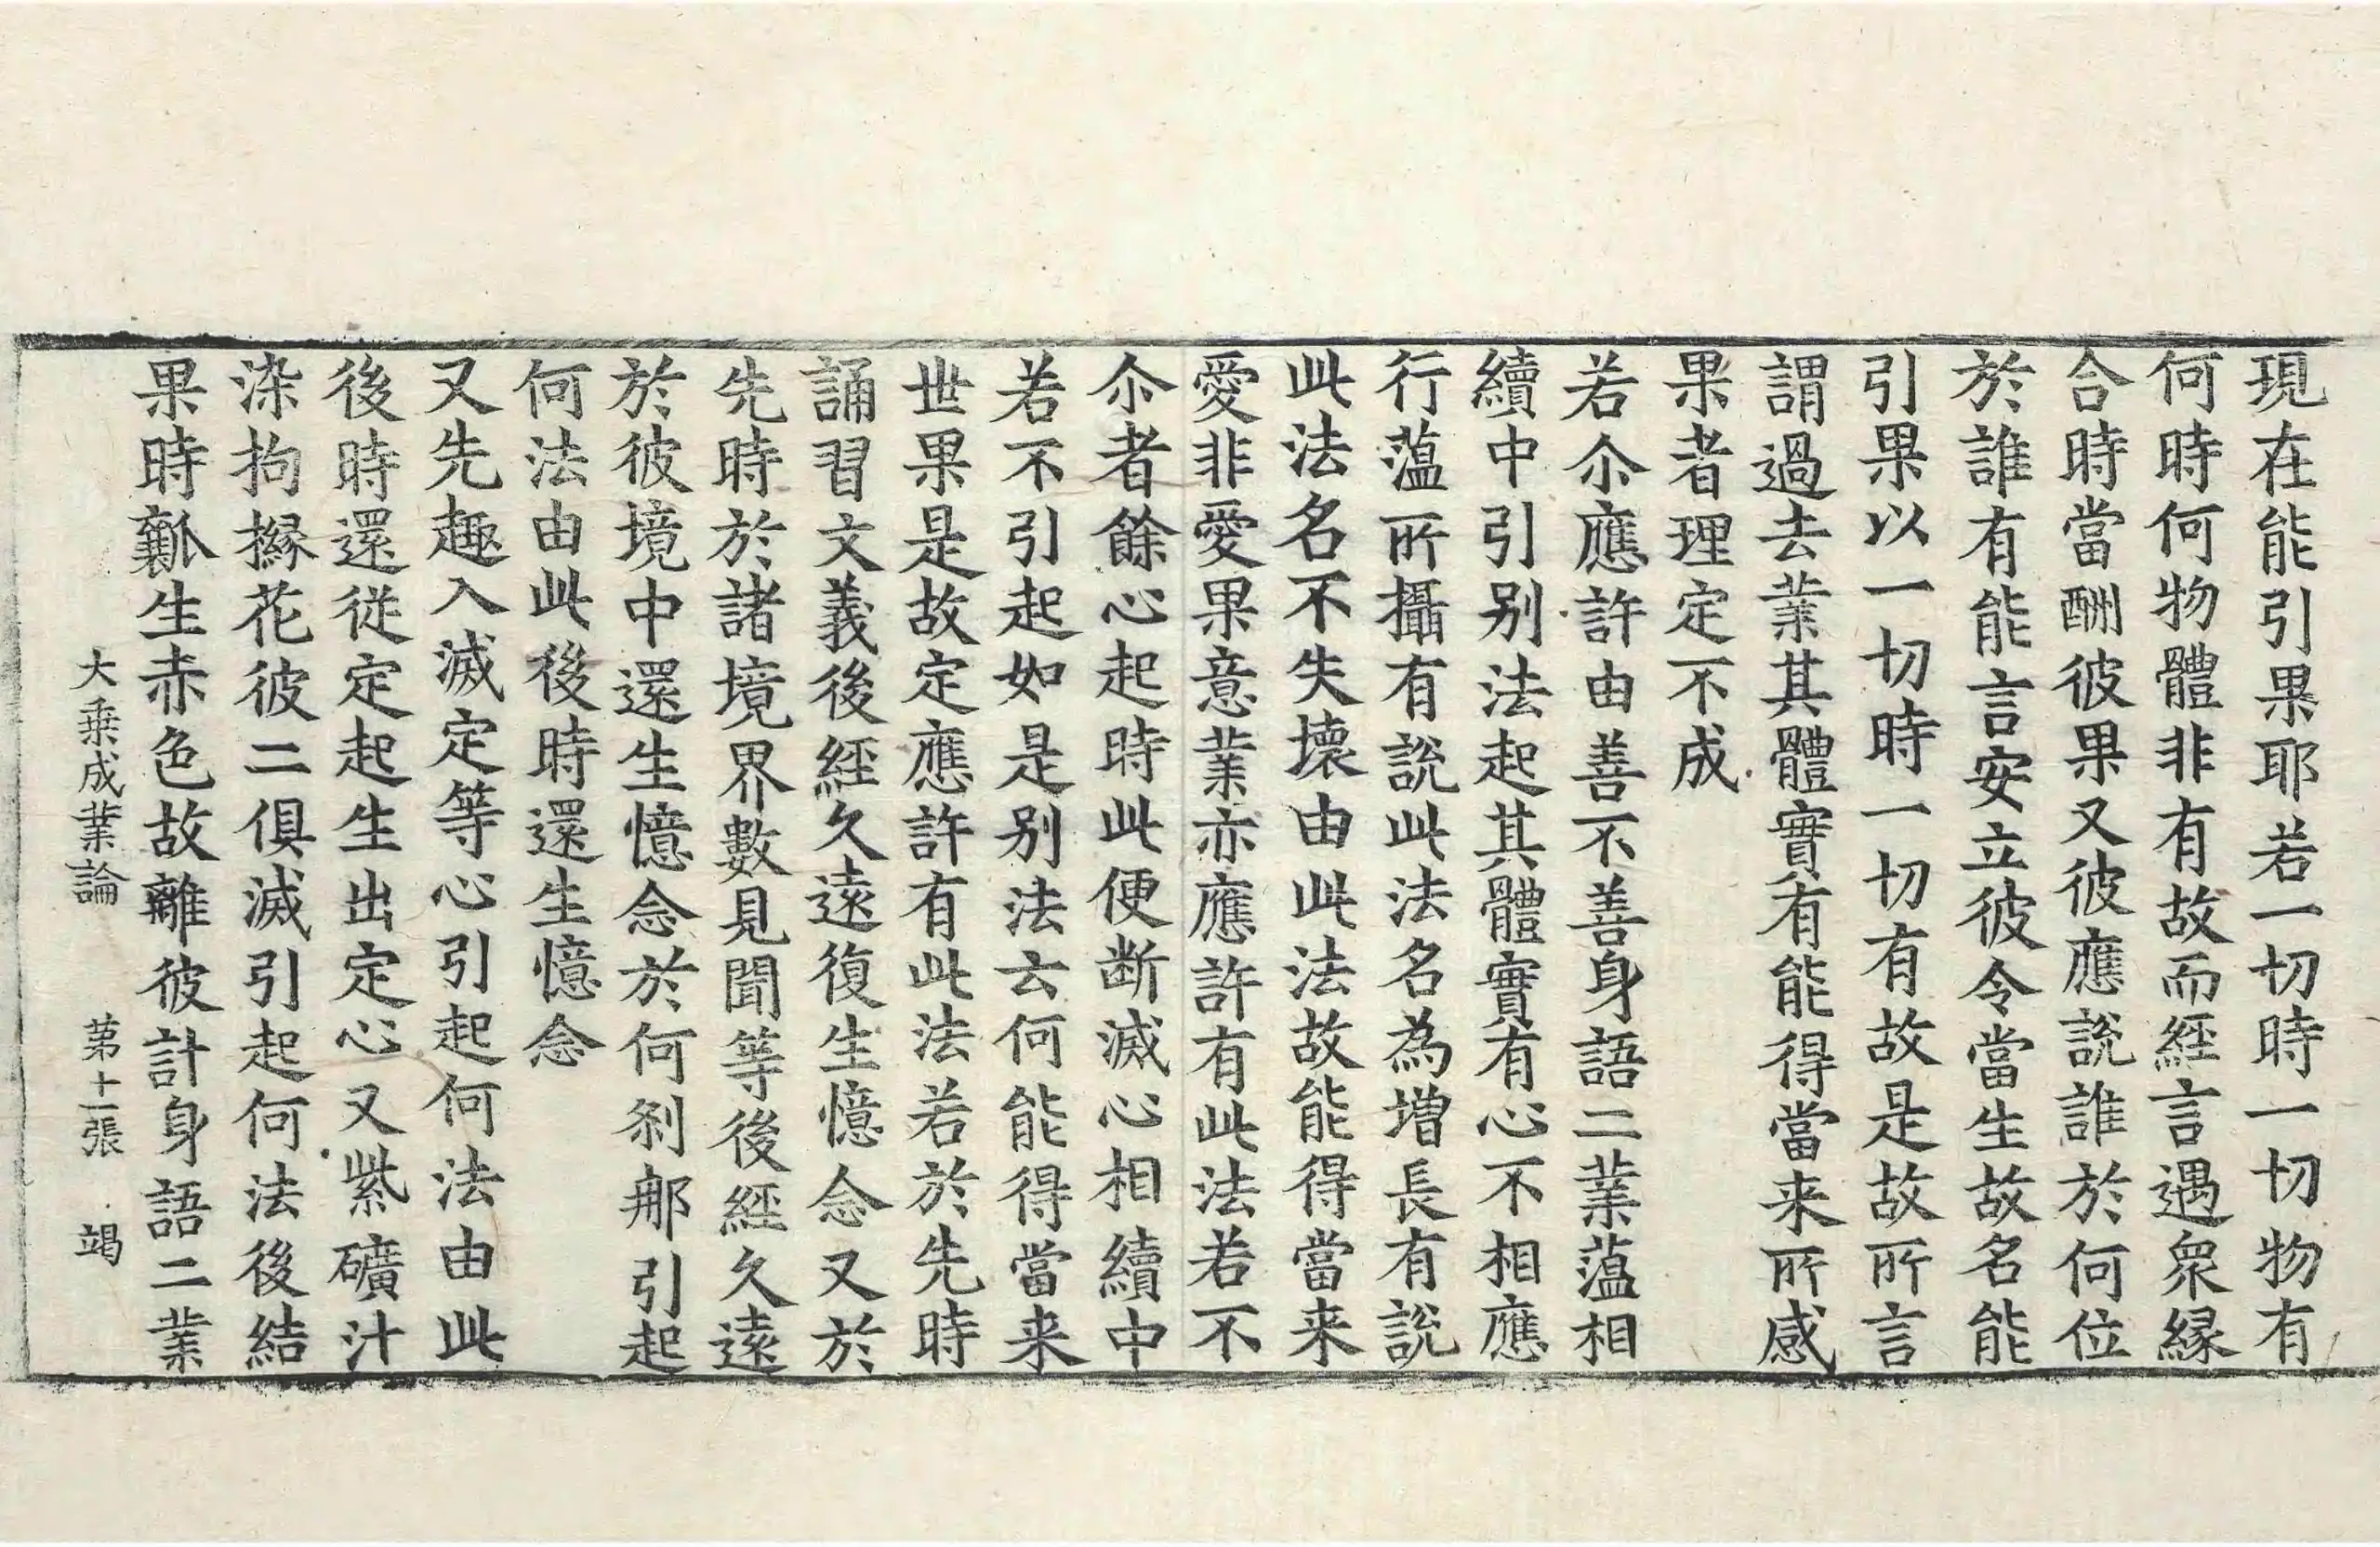 現在能引果耶若一切時一切物有
何時何物體非有故而經言遇衆縁
合時當酬彼果又彼應說誰於何位
於誰有能言安立彼令當生故名能
引果以一切時一切有故是故所言
謂過去業其體實有能得當来所感
果者理定不成
若尒應許由善不善身語二業蘊相
續中引别法起其體實有心不相應
行蘊所攝有說此法名為增長有說
此法名不失壞由此法故能得當来
愛非愛果意業亦應許有此法若不
尒者餘心起時此便断滅心相續中
若不引起如是别法云何能得當来
世果是故定應許有此法若於先時
誦習文義後經久遠復生憶念又於
先時於諸境界數見聞等後經久遠
於彼境中還生憶念於何刹那引起
何法由此後時還生憶念
又先趣入滅定等心引起何法由此
後時還従定起生出定心又紫礦汁
染拘櫞花彼二俱滅引起何法後結
果時瓤生赤色故離彼計身語二業
大乗成業論 第十一張 竭